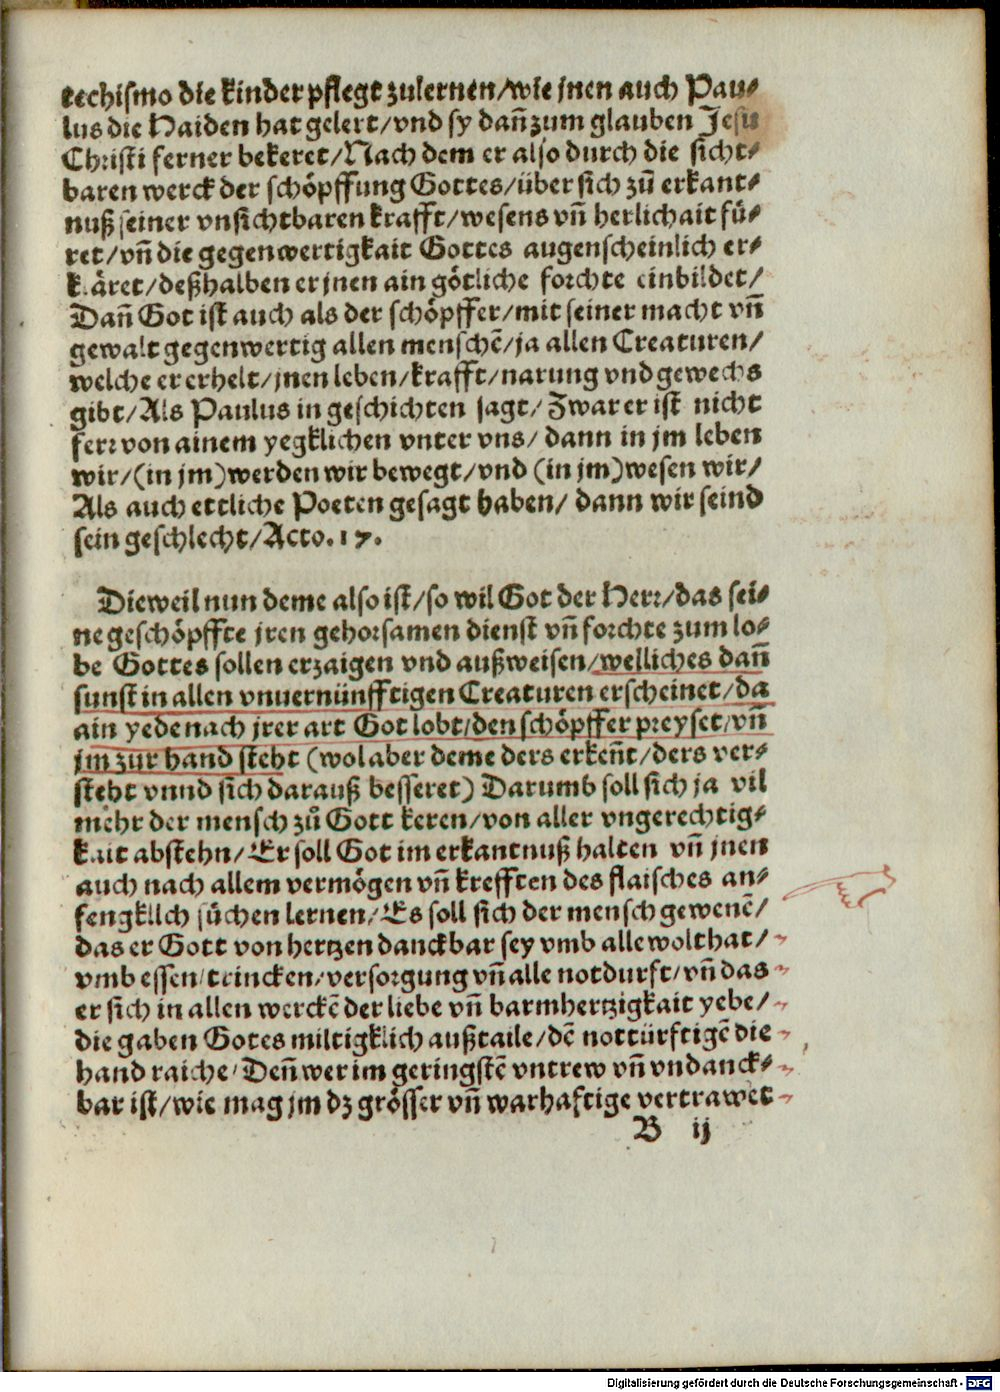 techismo die kinder pflegt zulernen/wie jnen auch Pau⸗
lus die Haiden hat gelert/vnd sy dañ zum glauben Jesu
Christi ferner bekeret/Nach dem er also durch die sicht⸗
baren werck der schöpffung Gottes/über sich zů erkant⸗
nuß seiner vnsichtbaren krafft/wesens vñ herlichait fü⸗
ret/vñ die gegenwertigkait Gottes augenscheinlich er⸗
kläret/deßhalben er jnen ain götliche forchte einbildet/
Dañ Got ist auch als der schöpffer/mit seiner macht vñ
gewalt gegenwertig allen menschẽ/ja allen Creaturen/
welche er erhelt/jnen leben/krafft/narung vnd gewechs
gibt/Als Paulus in geschichten sagt/Zwar er ist nicht
ferr von ainem yegklichen vnter vns/ dann in jm leben
wir/(in jm)werden wir bewegt/vnd (in jm)wesen wir/
Als auch ettliche Poeten gesagt haben/ dann wir seind
sein geschlecht/Acto.17.
Dieweil nun deme also ist/so wil Got der Herr/das sei⸗
ne geschöpffte jren gehorsamen dienst vñ forchte zum lo⸗
be Gottes sollen erzaigen vnd außweisen/welliches dañ
sunst in allen vnuernünfftigen Creaturen erscheinet/da
ain yede nach jrer art Got lobt/den schöpffer preyset/vñ
jm zur hand steht (wol aber deme ders erkeñt/ders ver⸗
steht vnnd sich darauß besseret) Darumb soll sich ja vil
mehr der mensch zů Gott keren/von aller vngerechtig⸗
kait abstehn/Er soll Got im erkantnuß halten vñ jnen
auch nach allem vermögen vñ krefften des flaisches an⸗
fengklich sůchen lernen/Es soll sich der mensch gewenẽ/
das er Gott von hertzen danckbar sey vmb alle wolthat/
vmb essen/trincken/versorgung vñ alle notdurft/vñ das
er sich in allen werckẽ der liebe vñ barmhertzigkait yebe/
die gaben Gotes miltigklich außtaile/dẽ nottürftigẽ die
hand raiche/Deñ wer im geringstẽ vntrew vñ vndanck⸗
bar ist/wie mag jm dz grösser vñ warhaftige vertrawet
B ij
Digitalisierung gefördert durch die Deutsche Forschungsgemeinschaft - DFG